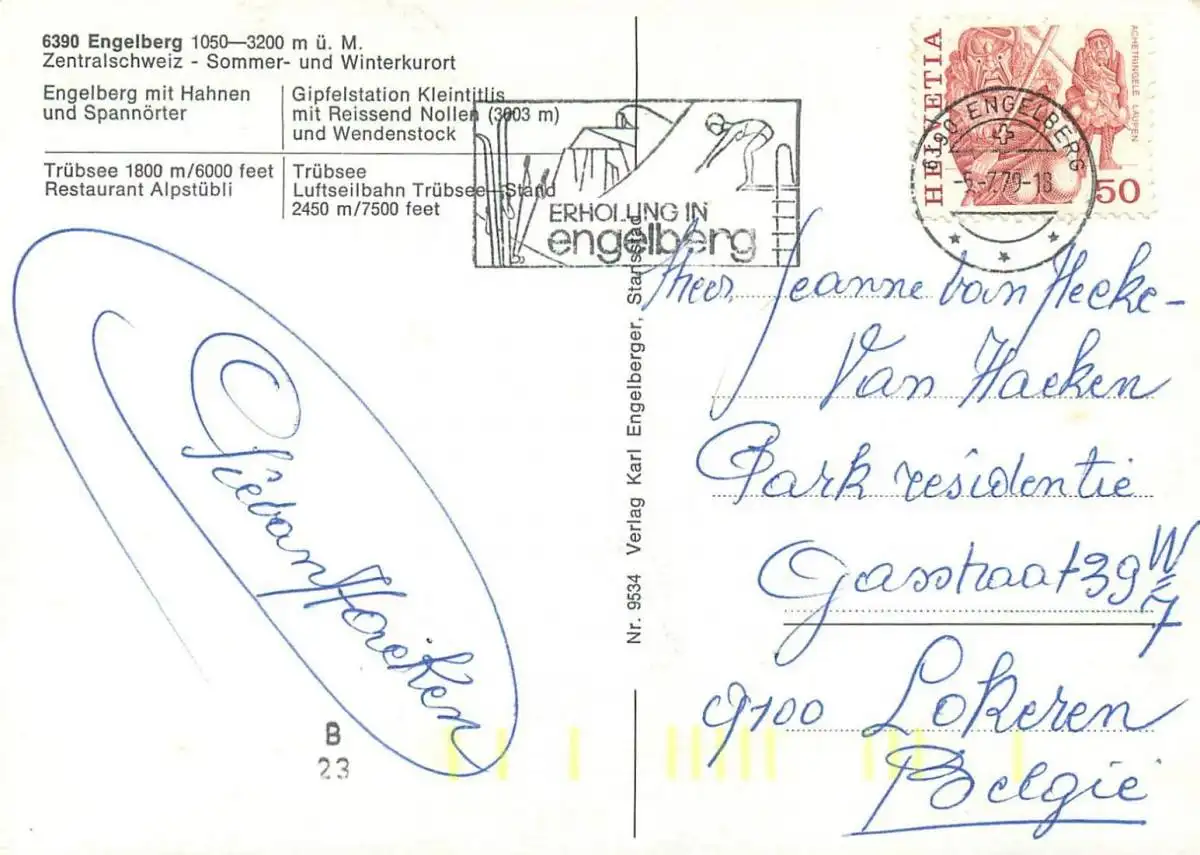 6390 Engelberg 1050—3200 m ü. M.
Zentralschweiz - Sommer- und Winterkurort
Engelberg mit Hahnen
und Spannörter
Gipfelstation Kleintitlis
mit Reissend Nollen (3003 m)
und Wendenstock
Trübsee 1800 m/6000 feet
Restaurant Alpstübli
Trübsee
Luftseilbahn Trübsee—Stand
2450 m/7500 feet
ERHOLUNG IN
engelberg
HELVETIA
ACHETRINGELE LAUPEN
50
6390 ENGELBERG
-5.-7.79-18
Nr. 9534 Verlag Karl Engelberger, Stansstad
Van Haeken
B
23
Jeanne Van Hecke-
Van Haeken
Park residentie
Gasstraat 39 W
7
9100 Lokeren
België